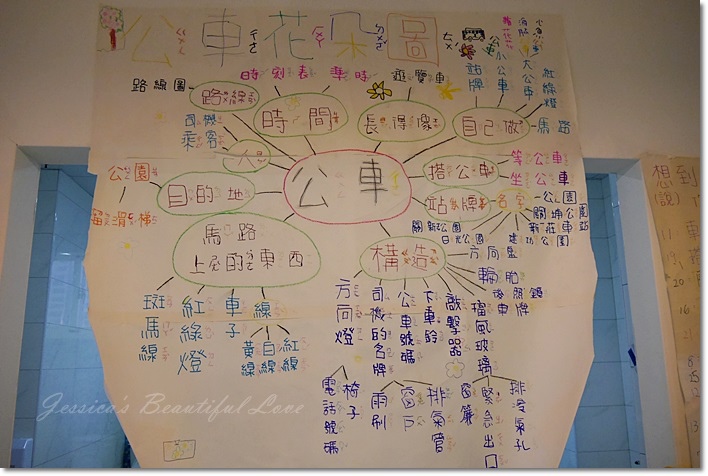 公車花朵圖
火車
大公車
小公車
站牌
紅綠燈
馬路
自己做
長得像
遊覽車
時間
時刻表
準時
路線
路線圖
司機
乘客
人
目的地
公園
溜滑梯
公車
搭公車
等公車
坐公車
站牌名字
公園
關新公園
日光公園
馬路上的東西
斑馬線
紅綠燈
車子
線
黃線
白線
紅線
構造
方向盤
輪胎
車牌
方向燈
司機的名牌
公車號碼
下車鈴
敲擊器
擋風玻璃
電話號碼
椅子
雨刷
窗戶
排氣管
窗簾
緊急出口
排冷氣孔
想到
(說)
Jessica's Beautiful Love